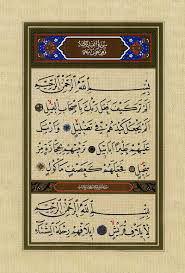 بِسْمِ اللّٰهِ الرَّحْمٰنِ الرَّحِيمِ
اَلَمْ تَرَ كَيْفَ فَعَلَ رَبُّكَ بِاَصْحَابِ الْفِيلِ
اَلَمْ يَجْعَلْ كَيْدَهُمْ فِي تَضْلِيلٍ وَاَرْسَلَ
عَلَيْهِمْ طَيْرًا اَبَابِيلَ تَرْمِيهِمْ بِحِجَارَةٍ مِنْ
سِجِّيلٍ فَجَعَلَهُمْ كَعَصْفٍ مَأْكُولٍ
بِسْمِ اللّٰهِ الرَّحْمٰنِ الرَّحِيمِ
لِاِيلَافِ قُرَيْشٍ اِيلَافِهِمْ رِحْلَةَ الشِّتَاءِ